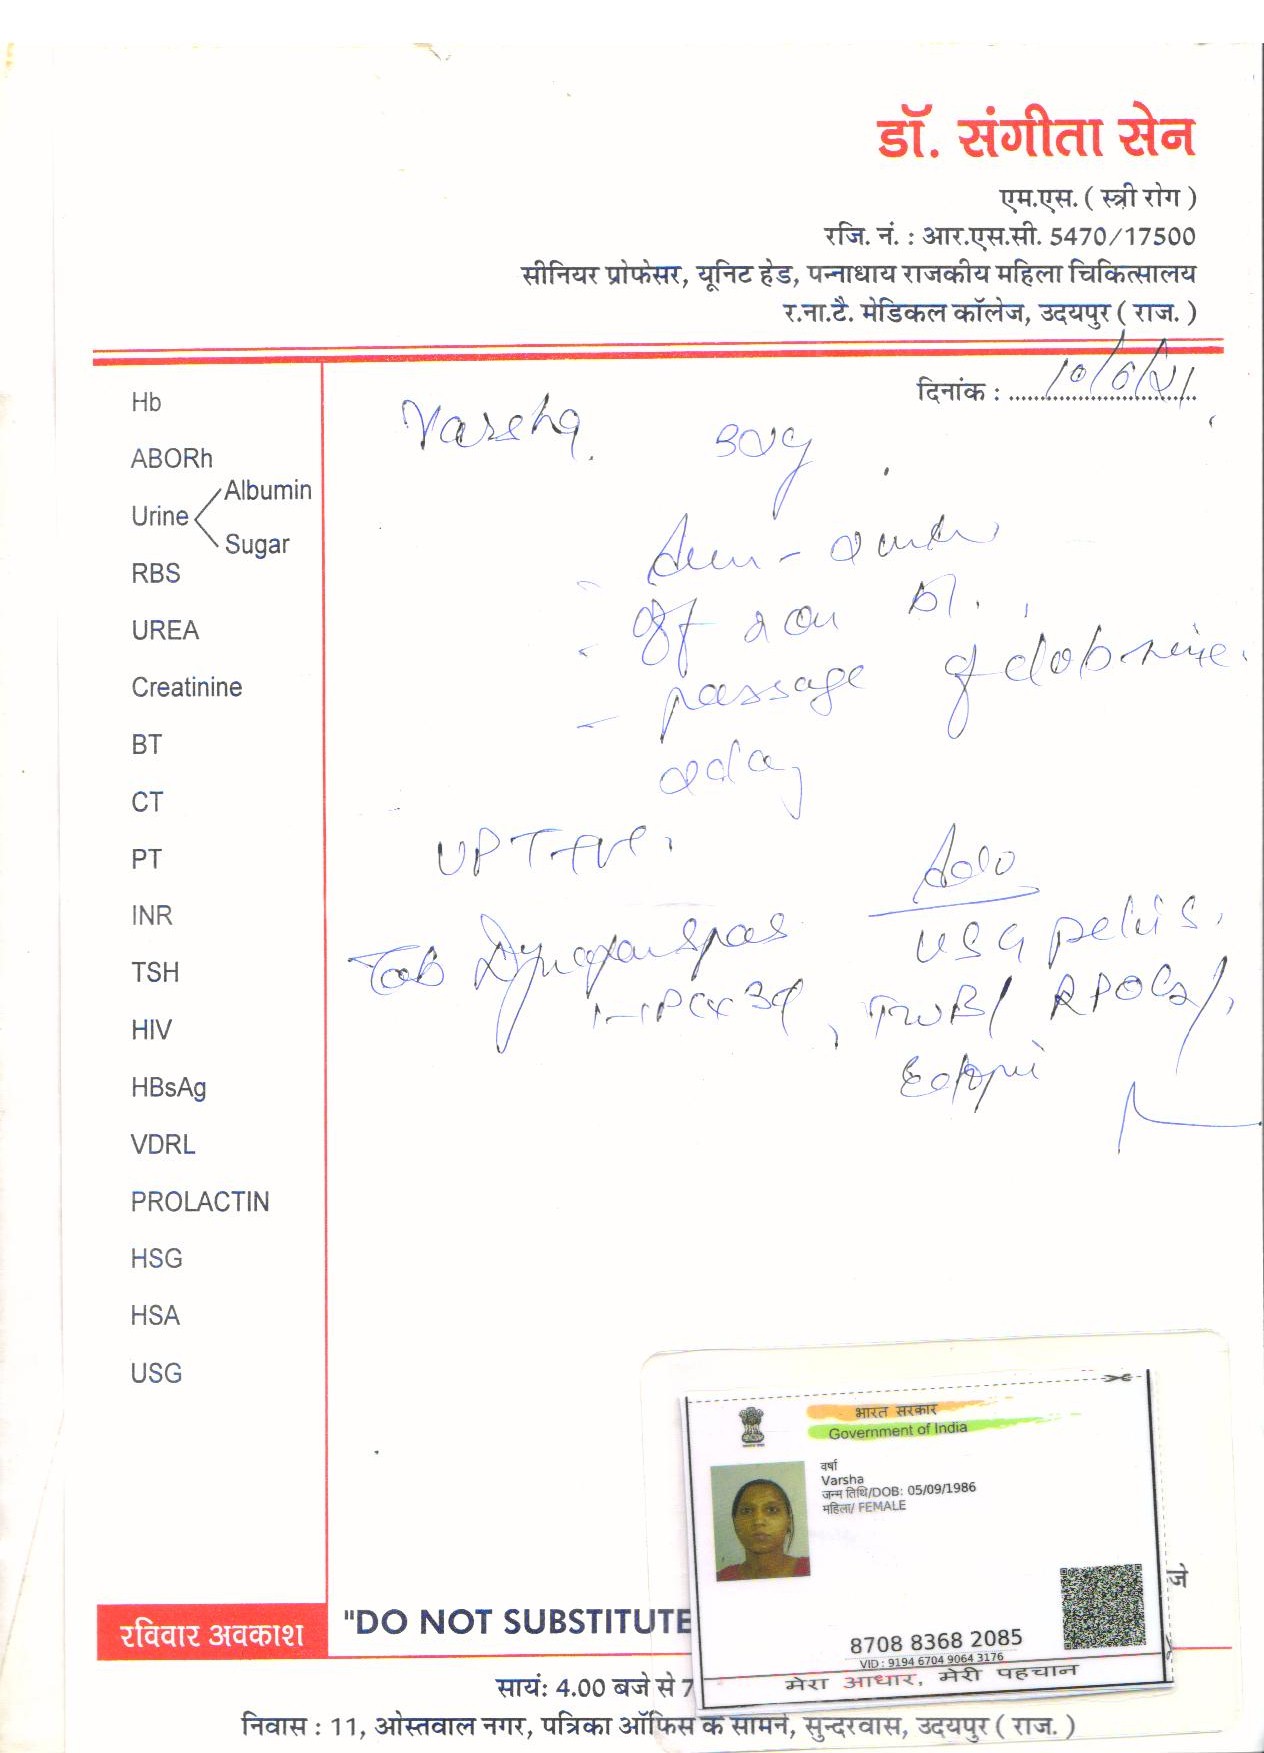 डॉ. संगीता सेन
एम.एस. ( स्त्री रोग )
रजि. नं. : आर.एस.सी. 5470/17500
सीनियर प्रोफेसर, यूनिट हेड, पन्नाधाय राजकीय महिला चिकित्सालय
र.ना.टै. मेडिकल कॉलेज, उदयपुर ( राज. )
दिनांक : 10/6/21
Varsha
Hb
ABORh
Urine
Albumin
Sugar
RBS
UREA
Creatinine
BT
CT
PT
INR
TSH
HIV
HBsAg
VDRL
PROLACTIN
HSG
HSA
USG
passage of
UPT +ve.
Adv
Tab
USG pelvis.
RPOCs/
भारत सरकार
Government of India
वर्षा
Varsha
जन्म तिथि/DOB: 05/09/1986
महिला/ FEMALE
8708 8368 2085
VID : 9194 6704 9064 3176
मेरा आधार, मेरी पहचान
जे
रविवार अवकाश
"DO NOT SUBSTITUTE
सायं: 4.00 बजे से 7
निवास : 11, ओस्तवाल नगर, पत्रिका ऑफिस के सामने, सुन्दरवास, उदयपुर ( राज. )